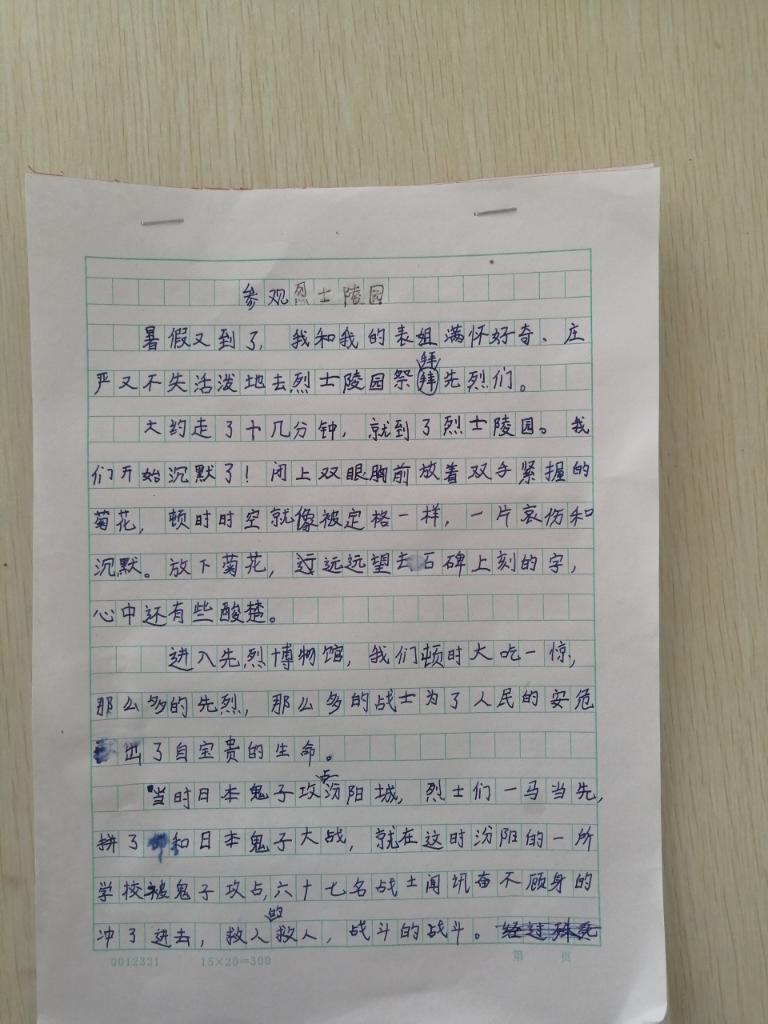 参观烈士陵园
暑假又到了，我和我的表姐满怀好奇、庄
严又不失活泼地去烈士陵园祭拜先烈们。
大约走了十几分钟，就到了烈士陵园。我
们开始沉默了！闭上双眼胸前放着双手紧握的
菊花，顿时时空就像被定格一样，一片哀伤和
沉默。放下菊花，远远望去石碑上刻的字，
心中还有些酸楚。
进入先烈博物馆，我们顿时大吃一惊，
那么多的先烈，那么多的战士为了人民的安危
出了自宝贵的生命。
当时日本鬼子攻占汾阳城，烈士们一马当先，
拼了和日本鬼子大战，就在这时汾阳的一所
学校被鬼子攻占，六十七名战士闻讯奋不顾身的
冲了进去，救人的救人，战斗的战斗。
0012321 15×20=300 第 页